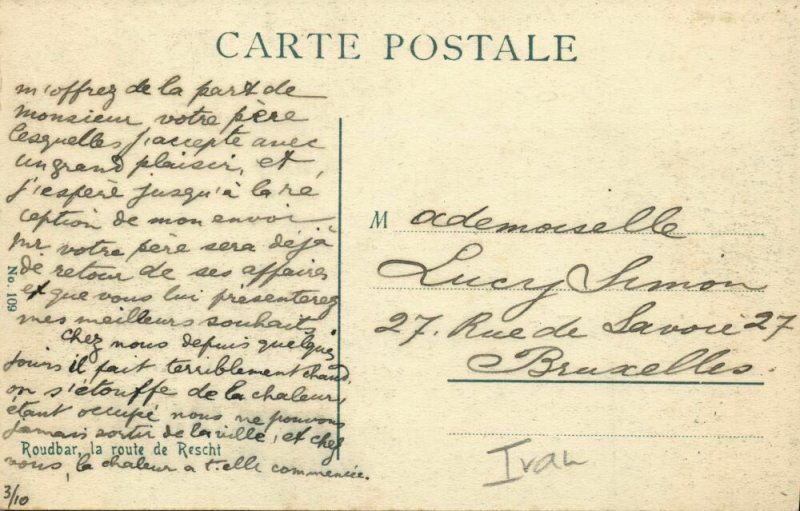 CARTE POSTALE
m'offrez de la part de
monsieur votre père
lesquelles j'accepte avec
un grand plaisir, et
j'espère jusqu'à la ré
ception de mon envoi
Mr votre père sera déjà
de retour de ses affaires
et que vous lui présenterez
mes meilleurs souhaits
Chez nous depuis quelques
jours il fait terriblement chaud.
on s'étouffe de la chaleur,
étant occupé nous ne pouvons
jamais sortir de la ville, et chez
vous, la chaleur a t'elle commencée.
3/10
No. 109
Roudbar, la route de Rescht
Mademoiselle
Lucy Simon
27. Rue de Savoie 27
Bruxelles.
Iran